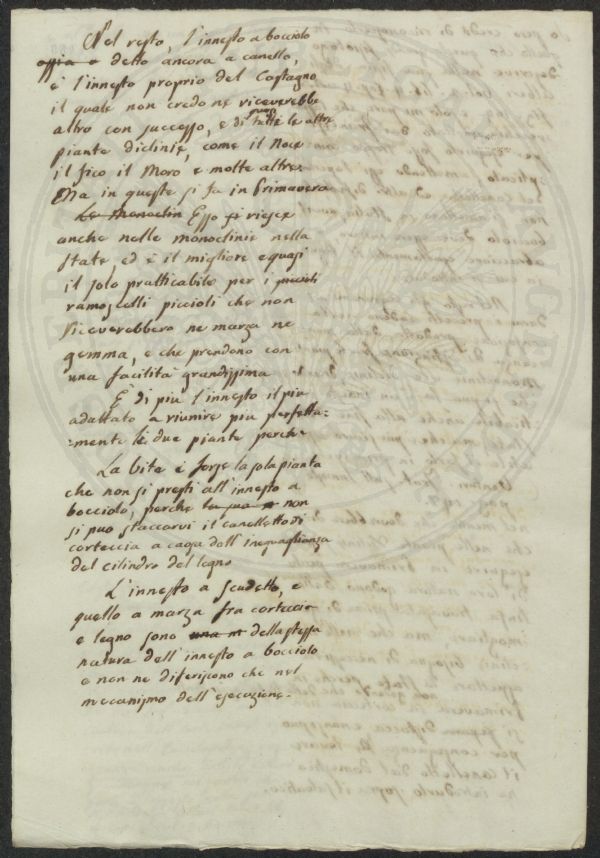 Nel resto, l'innesto a bocciolo
ossia e detto ancora a canello,
è l'innesto proprio del Castagno
il quale non credo ne riceverebbe
altro con successo, e di quasi tutte le altre
piante diclinie, come il Noce
il fico il Moro e molte altre.
Ma in queste si fa in Primavera
Le monoclin Esso si riesce
anche nelle monoclinie nella
state, ed è il migliore e quasi
il solo pratticabile per i piccioli
ramoscelli piccioli che non
riceverebbero ne marza ne
gemma, e che prendono con
una facilità grandissima
È di più l'innesto il più
adattato a riunire più perfetta=
=mente le due piante perche
La Vite è forse la sola pianta
che non si presti all'innesto a
bocciolo, perche non
si può staccarvi il canelletto di
corteccia a cagion dell'inequaglianza
del cilindro del legno
L'innesto a scudetto, e
quello a marza fra corteccia
e legno sono una m della stessa
natura dell'innesto a bocciolo
e non ne diferiscono che nel
meccanismo dell'esecuzione.